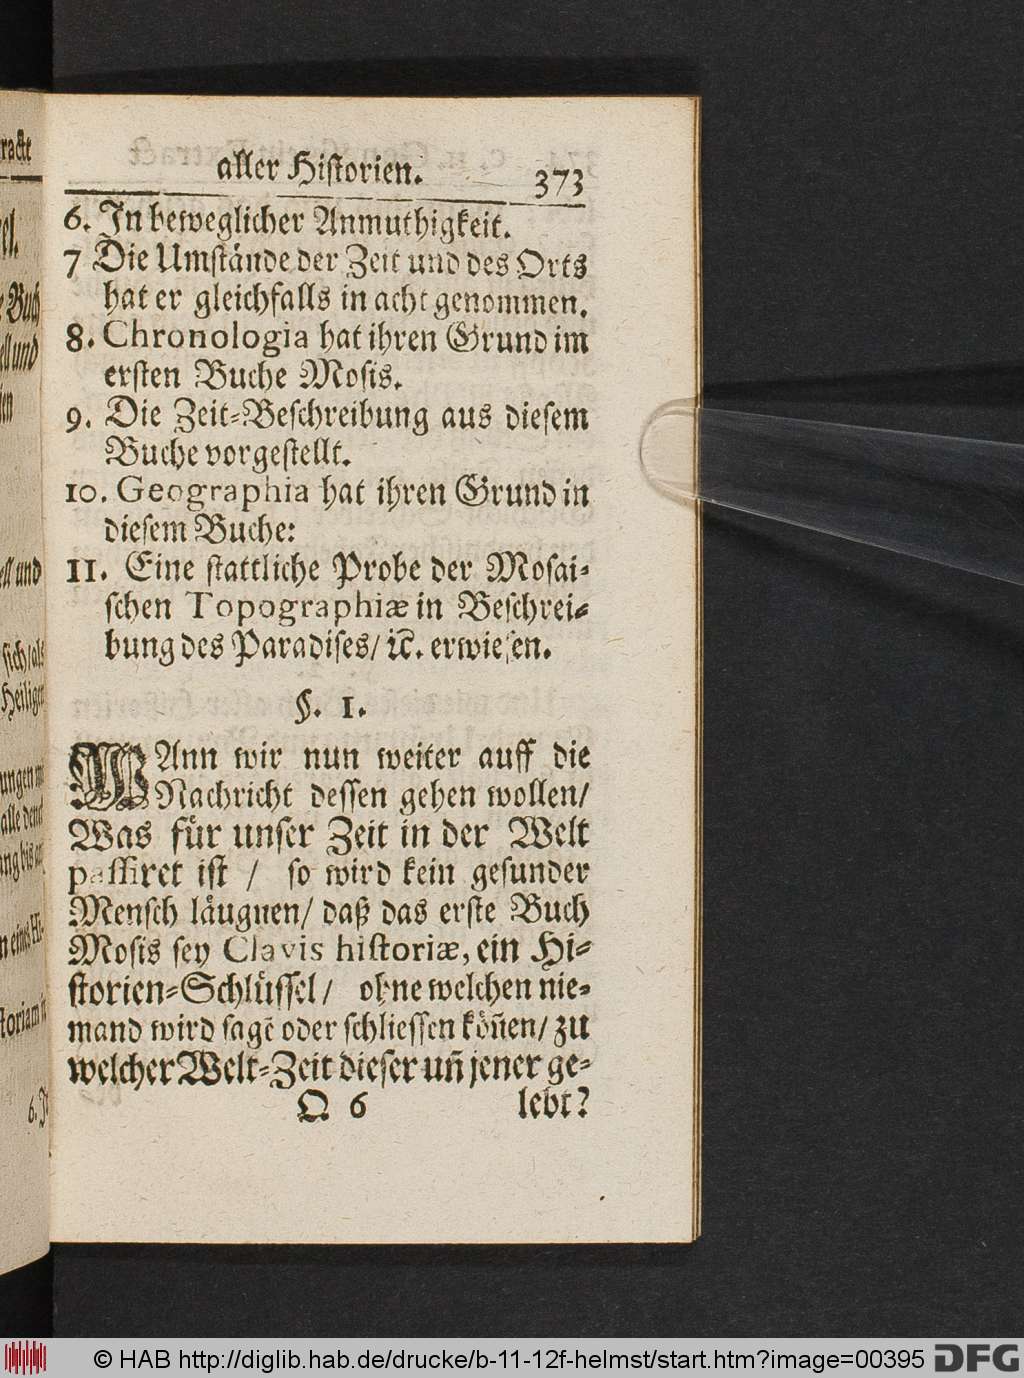 aller Historien. 373
6. In beweglicher Anmuthigkeit.
7 Die Umstände der Zeit und des Orts
hat er gleichfalls in acht genommen.
8. Chronologia hat ihren Grund im
ersten Buche Mosis.
9. Die Zeit-Beschreibung aus diesem
Buche vorgestellt.
10. Geographia hat ihren Grund in
diesem Buche:
11. Eine stattliche Probe der Mosai-
schen Topographiæ in Beschrei-
bung des Paradises/ ꝛc. erwiesen.
§. 1.
WAnn wir nun weiter auff die
Nachricht dessen gehen wollen/
Was für unser Zeit in der Welt
passiret ist / so wird kein gesunder
Mensch läugnen/ daß das erste Buch
Mosis sey Clavis historiæ, ein Hi-
storien-Schlüssel/ ohne welchen nie-
mand wird sagẽ oder schliessen köñen/ zu
welcher Welt-Zeit dieser uñ jener ge-
Q 6 lebt?
© HAB http://diglib.hab.de/drucke/b-11-12f-helmst/start.htm?image=00395 DFG